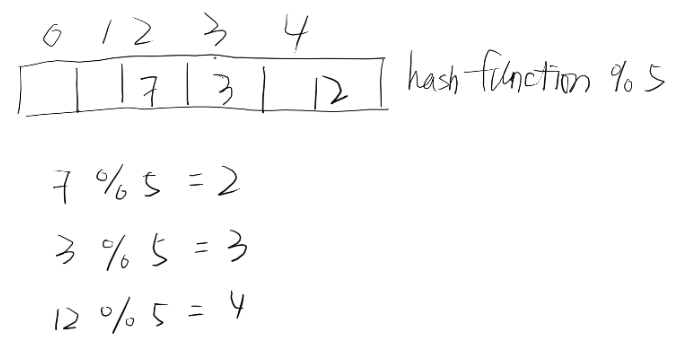 0 1 2 3 4
7 3 12 hash function % 5
7 % 5 = 2
3 % 5 = 3
12 % 5 = 4